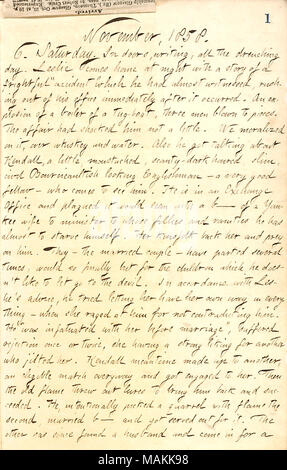 1
November, 1858.
6. Saturday. In doors writing, all the drenching
day. Leslie comes home at night with a story of a
frightful accident which he had almost witnessed, rush-
ing out of his office immediately after it occurred. An ex-
plosion of a boiler of a tug-boat, three men blown to pieces.
The affair had shocked him not a little. We moralized
on it, over whiskey and water. Also he got talking about
Kendall, a little moustached, scanty-dark haired slim,
civil Bourcicaultish looking Englishman — a very good
fellow — who comes to see him. He is in an Exchange
office and plagued it would seem with a b— of a Yan-
kee wife to minister to whose follies and vanities he has
almost to starve himself. Her kinsfolk back her and prey
on him. They — the married couple — have parted several
times, would so finally but for the children which he does-
n't like to let go to the devil. In accordance with Les-
lie's advice, he tried letting her have her own way in every-
thing — when she raged at him for not contradicting him.
He "was infatuated with her before marriage", suffered
rejection once or twice, she having a strong liking for another
who jilted her. Kendall meantime made up to another,
an eligible match everyway and got engaged to her. Then
the old flame threw out lures to bring him back and suc-
ceeded. He intentionally picked a quarrel with flame the
second, married b— and got served out for it. The
other has since found a husband and come in for a
alamy
Image ID: MAKK98
www.alamy.com